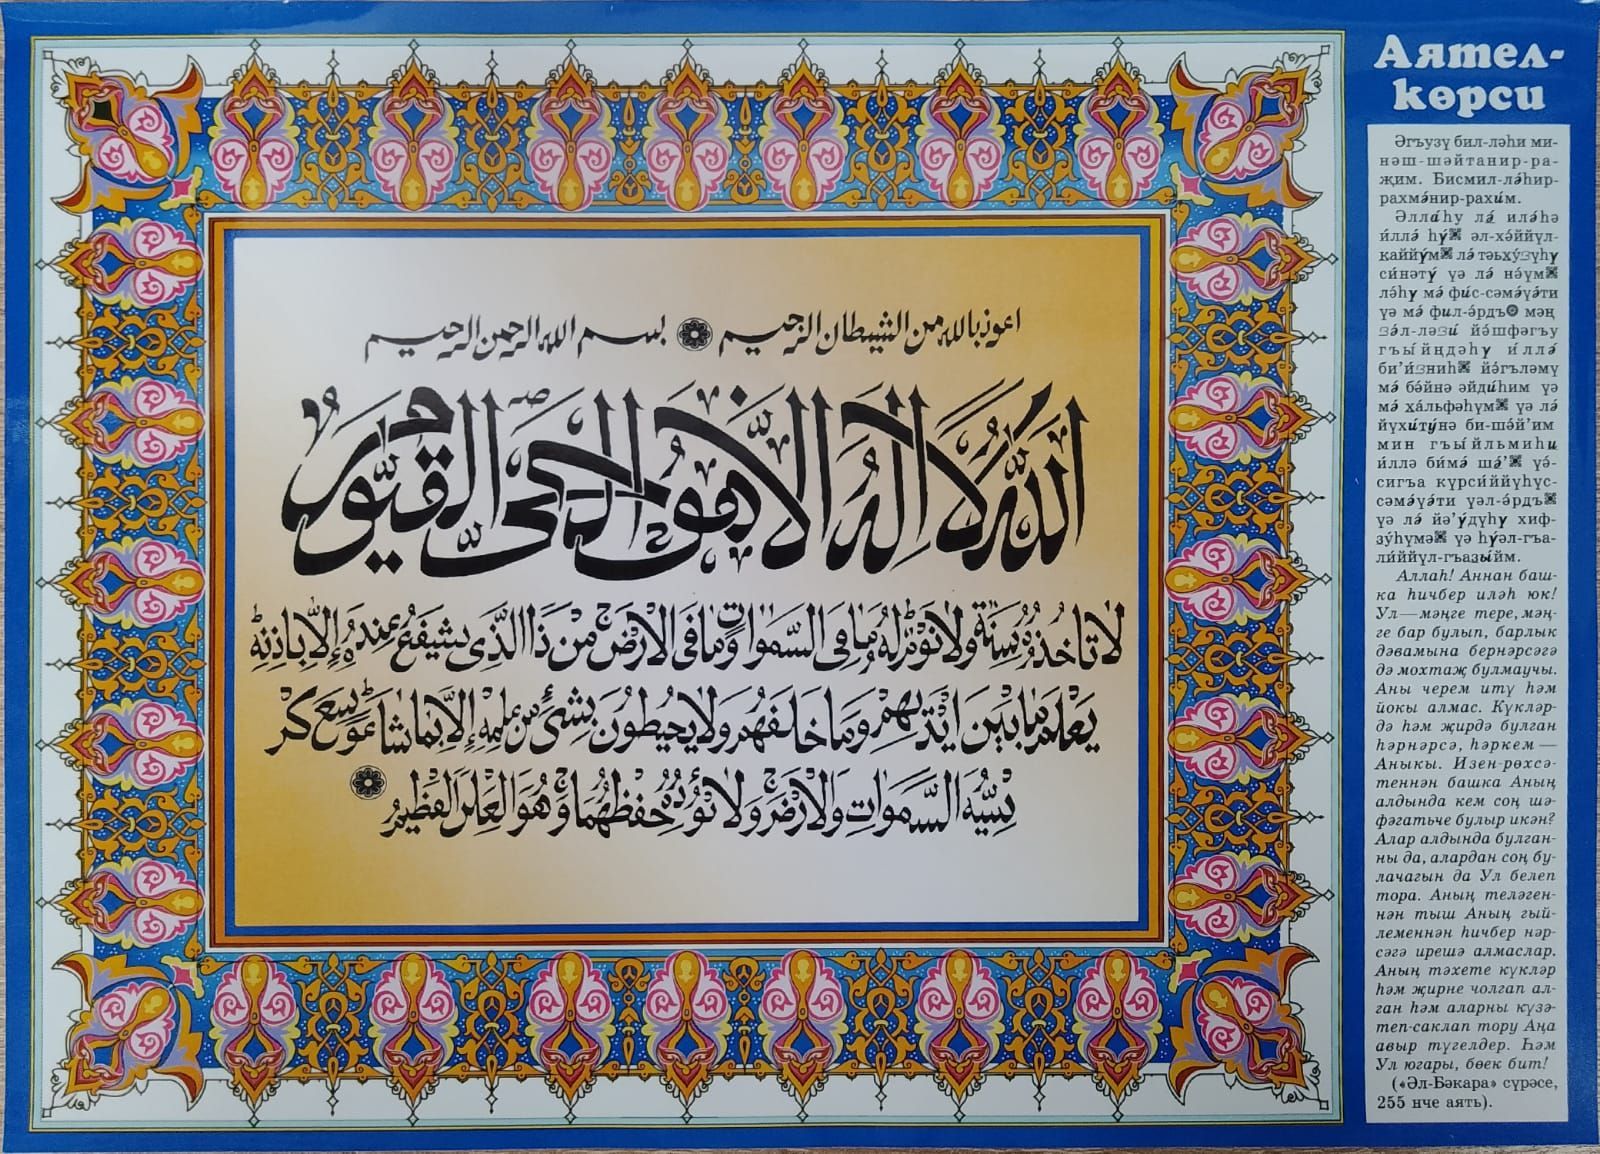 اعوذ بالله من الشيطان الرجيم بسم الله الرحمن الرحيم
اَللّٰهُ لَا اِلٰهَ اِلَّا هُوَ اَلْحَىُّ الْقَيُّومُ
لَا تَاْخُذُهُ سِنَةٌ وَلَا نَوْمٌ لَهُ مَا فِى السَّمٰوَاتِ وَمَا فِى الْاَرْضِ مَنْ ذَا الَّذِى يَشْفَعُ عِنْدَهُ اِلَّا بِاِذْنِهٖ
يَعْلَمُ مَا بَيْنَ اَيْدِيهِمْ وَمَا خَلْفَهُمْ وَلَا يُحِيطُونَ بِشَىْءٍ مِنْ عِلْمِهٖ اِلَّا بِمَا شَاءَ وَسِعَ كُرْ
سِيُّهُ السَّمٰوَاتِ وَالْاَرْضَ وَلَا يَؤُدُهُ حِفْظُهُمَا وَهُوَ الْعَلِىُّ الْعَظِيمُ
Аятел-
көрси
Әгъузү бил-ләһи ми-
нәш-шәйтанир-ра-
җим. Бисмил-лә́һир-
рахмә́нир-рахи́м.
Әлла́һу лә́ илә́һә
и́ллә́ һү́ әл-хә́ййүл-
каййү́м лә́ тәьхү́зүһү
си́нәтү́ үә лә́ нә́үм
лә́һү мә́ фи́с-сәмә́үә́ти
үә мә́ фил-ә́рдъ мәң
зә́л-ләзи́ йә́шфәгъу
гъы́йңдәһү и́ллә́
би’и́зниһ йә́гъләмү
мә́ бә́йнә әйди́һим үә
мә́ ха́льфәһүм үә лә́
йүхи́тү́нә би-шә́й’им
мин гъы́йльмиһи
и́ллә би́мә́ шә́’ үә́-
сигъа күрси́ййүһүс-
сәмә́үә́ти үәл-ә́рдъ
үә лә́ йә’ү́дүһү хиф-
зү́һүмә үә һү́әл-гъа-
ли́ййүл-гъазы́йм.
Аллаһ! Аннан баш-
ка һичбер иләһ юк!
Ул — мәңге тере, мәң-
ге бар булып, барлык
дәвамына бернәрсәгә
дә мохтаҗ булмаучы.
Аны черем итү һәм
йокы алмас. Күкләр-
дә һәм җирдә булган
һәрнәрсә, һәркем —
Аныкы. Изен-рөхсә-
теннән башка Аның
алдында кем соң шә-
фәгатьче булыр икән?
Алар алдында булган-
ны да, алардан соң бу-
лачагын да Ул белеп
тора. Аның теләген-
нән тыш Аның гый-
леменнән һичбер нәр-
сәгә ирешә алмаслар.
Аның тәхете күкләр
һәм җирне чолгап ал-
ган һәм аларны күзә-
теп-саклап тору Аңа
авыр түгелдер. Һәм
Ул югары, бөек бит!
(«Әл-Бәкара» сүрәсе,
255 нче аять).